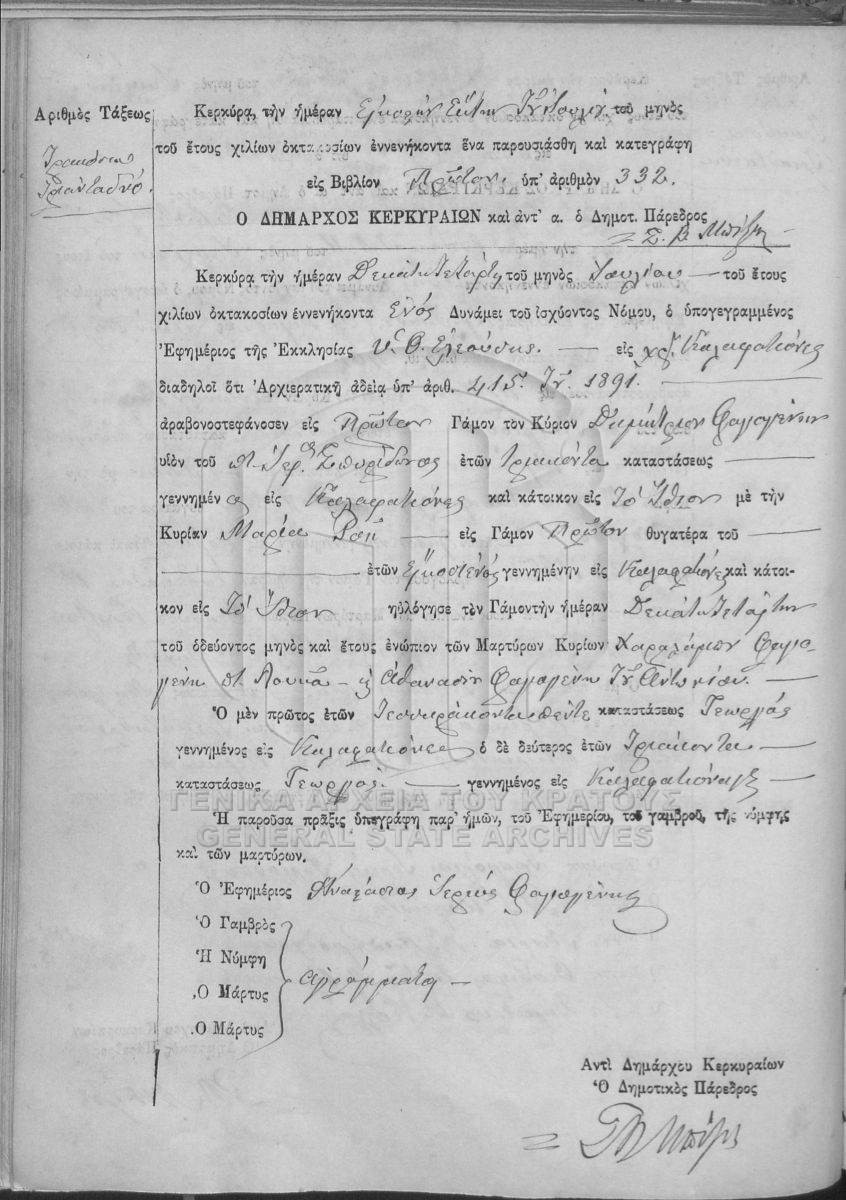 Ἀριθμὸς Τάξεως
Τριακόσια
Τριάντα δύο.
Κερκύρα, τὴν ἡμέραν Εἰκοστὴν Ἕκτην Ἰουλίου τοῦ μηνὸς
τοῦ ἔτους χιλίων ὀκτακοσίων ἐννενήκοντα ἕνα παρουσιάσθη καὶ κατεγράφη
εἰς Βιβλίον Πρῶτον ὑπ' ἀριθμὸν 332.
Ο ΔΗΜΑΡΧΟΣ ΚΕΡΚΥΡΑΙΩΝ καὶ ἀντ' α. ὁ Δημοτ. Πάρεδρος
Κερκύρα τὴν ἡμέραν Δεκάτη Τετάρτη τοῦ μηνὸς Ἰουλίου — τοῦ ἔτους
χιλίων ὀκτακοσίων ἐννενήκοντα Ἑνὸς Δυνάμει τοῦ ἰσχύοντος Νόμου, ὁ ὑπογεγραμμένος
Ἐφημέριος τῆς Ἐκκλησίας Υ. Θ. Ἐλεούσης. — εἰς χρ. Καλαφατιόνες
διαδηλοῖ ὅτι Ἀρχιερατικῇ ἀδείᾳ ὑπ' ἀριθ. 415. 1891. —
ἀραβονοστεφάνοσεν εἰς Πρῶτον Γάμον τον Κύριον Δημήτριον Φαγογένην
υἱὸν τοῦ Σπυρίδωνος ἐτῶν τριακόντα καταστάσεως —
γεννημένος εἰς Καλαφατιόνες καὶ κάτοικον εἰς Τὸ Ἴδιον μὲ τὴν
Κυρίαν Μαρία — εἰς Γάμον Πρῶτον θυγατέρα τοῦ —
— ἐτῶν Εἰκοσιενός γεννημένην εἰς Καλαφατιόνες καὶ κάτοι-
κον εἰς Τὸ Ἴδιον ηὐλόγησε τὸν Γάμον τὴν ἡμέραν Δεκάτη Τετάρτην
τοῦ ὁδεύοντος μηνὸς καὶ ἔτους ἐνώπιον τῶν Μαρτύρων Κυρίων Χαραλάμπη Φαγο-
γένη Λουκᾶ — Ἀθανασίου Φαγογένη Ἀντωνίου. —
Ὁ μὲν πρῶτος ἐτῶν Τεσσαράκοντα πέντε καταστάσεως Γεωργὸς
γεννημένος εἰς Καλαφατιόνες ὁ δὲ δεύτερος ἐτῶν Τριάκοντα —
καταστάσεως Γεωργὸς. — γεννημένος εἰς Καλαφατιόναις —
ΓΕΝΙΚΑ ΑΡΧΕΙΑ ΤΟΥ ΚΡΑΤΟΥΣ
GENERAL STATE ARCHIVES
Ἡ παροῦσα πρᾶξις ὑπεγράφη παρ' ἡμῶν, τοῦ Ἐφημερίου, τοῦ γαμβροῦ, τῆς νύμφης
καὶ τῶν μαρτύρων.
Ὁ Ἐφημέριος Ἱερεύς Φαγογένης
Ὁ Γαμβρὸς
Ἡ Νύμφη
Ὁ Μάρτυς
Ὁ Μάρτυς
ἀγράμματοι —
Αντὶ Δημάρχου Κερκυραίων
Ὁ Δημοτικὸς Πάρεδρος